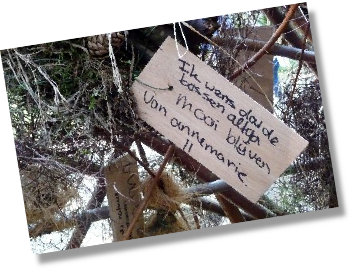 Ik wens dat de
bossen altijd
mooi blijven
Van annemarie.
!!